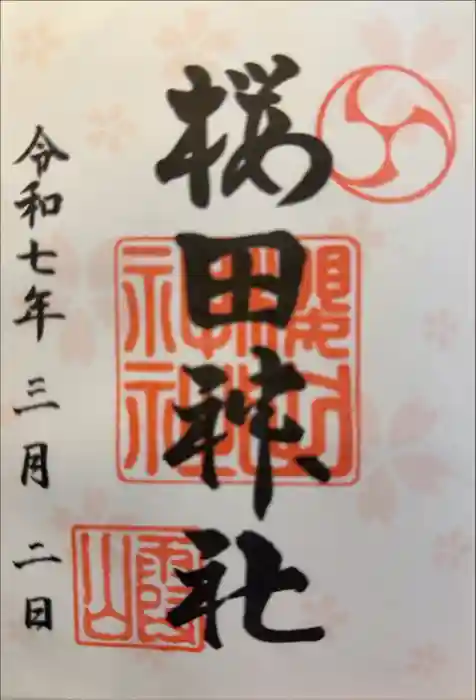 桜田神社
令和七年 三月 二日